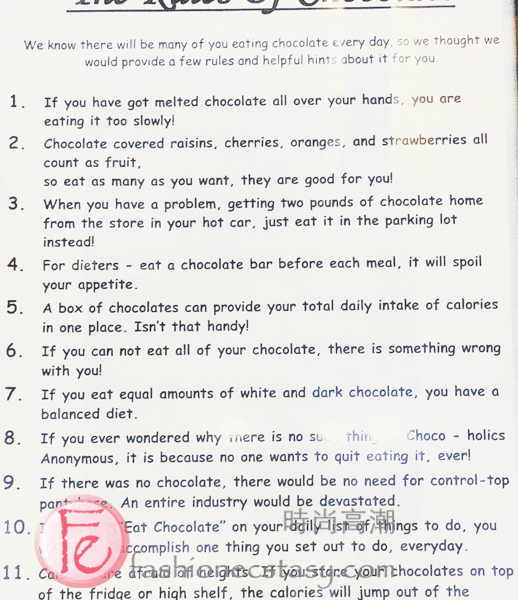 The Rules Of Chocolate
We know there will be many of you eating chocolate every day, so we thought we
would provide a few rules and helpful hints about it for you.
1. If you have got melted chocolate all over your hands, you are
eating it too slowly!
2. Chocolate covered raisins, cherries, oranges, and strawberries all
count as fruit,
so eat as many as you want, they are good for you!
3. When you have a problem, getting two pounds of chocolate home
from the store in your hot car, just eat it in the parking lot
instead!
4. For dieters - eat a chocolate bar before each meal, it will spoil
your appetite.
5. A box of chocolates can provide your total daily intake of calories
in one place. Isn't that handy!
6. If you can not eat all of your chocolate, there is something wrong
with you!
7. If you eat equal amounts of white and dark chocolate, you have a
balanced diet.
8. If you ever wondered why there is no such thing Choco - holics
Anonymous, it is because no one wants to quit eating it, ever!
9. If there was no chocolate, there would be no need for control-top
An entire industry would be devastated.
10. "Eat Chocolate" on your daily list of things to do, you
accomplish one thing you set out to do, everyday.
11. are afraid of heights. If you store your chocolates on top
of the fridge or high shelf, the calories will jump out of the
Fe
時尚高潮
fashionecstasy.com